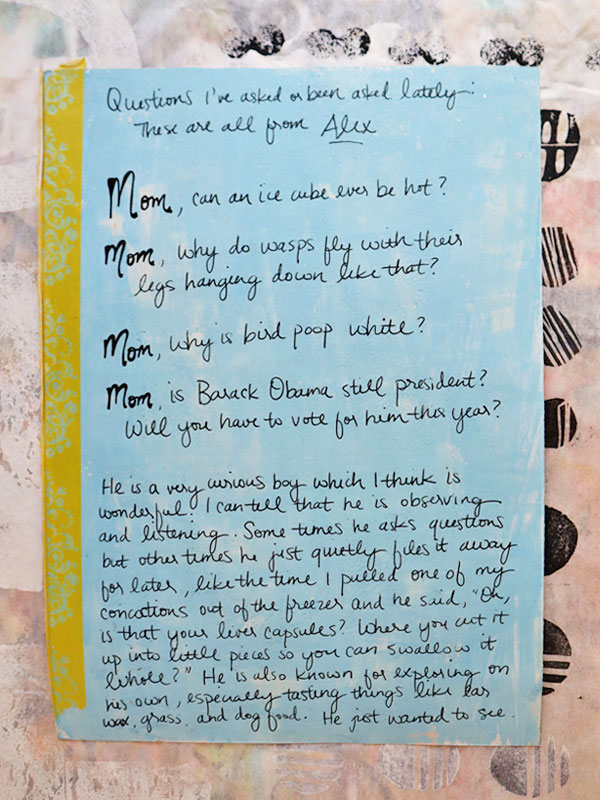 Questions I've asked or been asked lately:
These are all from Alex
Mom, can an ice cube ever be hot?
Mom, why do wasps fly with their
legs hanging down like that?
Mom, why is bird poop white?
Mom, is Barack Obama still president?
Will you have to vote for him this year?
He is a very curious boy which I think is
wonderful. I can tell that he is observing
and listening. Some times he asks questions
but other times he just quietly files it away
for later, like the time I pulled one of my
concotions out of the freezer and he said, "Oh,
is that your liver capsules? Where you cut it
up into little pieces so you can swallow it
whole?" He is also known for exploring on
his own, especially tasting things like ear
wax, grass, and dog food. He just wanted to see.